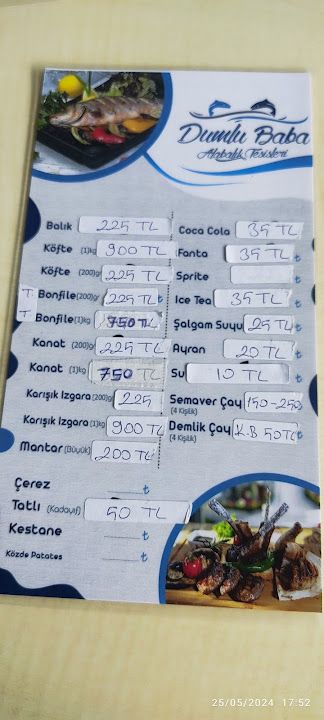 Dumlu Baba
Alabalık Tesisleri
Balık 225 TL
Köfte (1)kg 900 TL
Köfte (200)gr 225 TL
T Bonfile (200)gr 225 TL ₺
T Bonfile (1)kg 750 TL
Kanat (200)gr 225 TL
Kanat (1)kg 750 TL
Karışık Izgara (200)gr 225
Karışık Izgara (1)kg 900 TL
Mantar (Büyük) 200 TL
Çerez ₺
Tatlı (Kadayıf) 50 TL
Kestane ₺
Közde Patates ₺
Coca Cola 35 TL
Fanta 35 TL ₺
Sprite ₺
Ice Tea 35 TL ₺
Şalgam Suyu 25 TL ₺
Ayran 20 TL ₺
Su 10 TL ₺
Semaver Çay 150-250
(4 Kişilik)
Demlik Çay K.B 50 TL ₺
(4 Kişilik)
25/05/2024 17:52